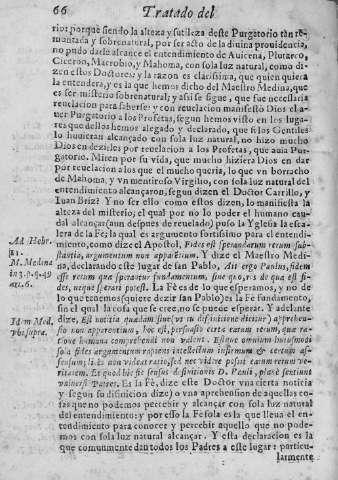 66 Tratado del
rio: porque siendo la alteza y sutileza deste Purgatorio tan re-
montada y sobrenatural, por ser acto de la diuina prouidencia,
no pudo darle alcance el entendimiento de Auicena, Plutarco,
Ciceron, Macrobio, y Mahoma, con sola luz natural, como di-
zen estos Doctores: y la razon es clarissima, que quien quiera
la entendera, y es la que hemos dicho del Maestro Medina, que
es ser misterio sobrenatural; y assi se sigue, que fue necessaria
reuelacion para saberse: y con reuelacion manifestò Dios el a-
uer Purgatorio a los Profetas, segun hemos visto en los luga-
res que dellos hemos alegado y declarado, que si los Gentiles
lo huuieran alcançado con sola luz natural, no hizo mucho
Dios en dezirles por reuelacion a los Profetas, que auia Pur-
gatorio. Miren por su vida, que mucho hiziera Dios en dar
por reuelacion a los que el mucho queria, lo que vn borracho
de Mahoma, y vn mentiroso Virgilio, con sola luz natural del
entendimiento alcançaron, segun dizen el Doctor Carrillo, y
Iuan Briz? Y no ser ello como estos dizen, lo manifiesta la
alteza del misterio; el qual por no lo poder el humano cau-
dal alcançar (aun despues de reuelado) puso la Yglesia la esca-
lera de la Fè; la qual es argumento fortissimo para el entendi-
miento, como dize el Apostol, Fides est sperandarum rerum sub-
stantia, argumentum non apparetium. Y dize el Maestro Medi-
na, declarando este lugar de san Pablo, Ait ergo Paulus, fidem
esse rerum quæ sperantur fundamentum, sine quo, res de qua est fi-
des, neque sperari potest. La Fè es de lo que esperamos, y no de
lo que tenemos (quiere dezir san Pablo) es la Fè fundamento,
sin el qual la cosa que se cree, no se puede esperar. Y adelante
dize, Est notitia quædam siue (vt in definitione dicitur) apprehen-
sio non apparentium, hoc est, persuasio certa earum rerum, quæ ra-
tione humana comprehendi non valent. Estque omnium huiusmodi
sola fides argumentum
ritatem. Et quod hic sit sensus definitionis D. Pauli, planè sentiunt
vniuersi Patres. Es la Fè, dize este Doctor vna cierta noticia
y segun su difinicion dize) o vna aprehension de aquellas co-
sas que no podemos percebir y alcançar con sola luz natural
del entendimiento; y por esso la Fe sola es la que lleua el en-
tendimiento para conocer y percebir aquello que no pode-
mos con sola luz natural alcançar. Y esta declaracion es la
que comunmente dan todos los Padres a este lugar: particu-
larmente
Ad Hebr.
M. Medina
Idem Med.
vbi supra.